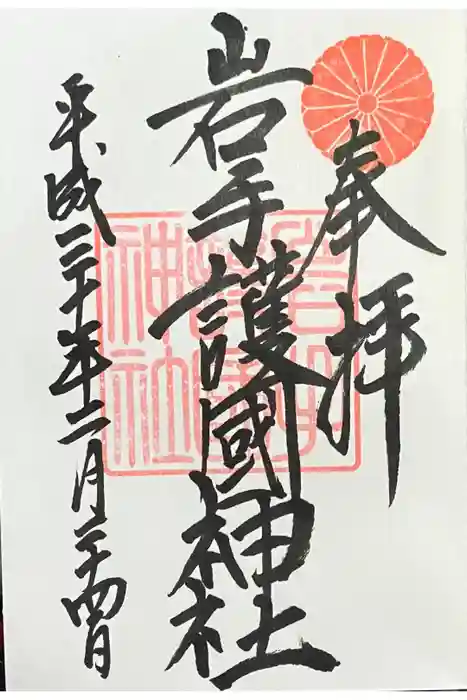 奉拝
岩手護國神社
平成三十年二月二十四日
岩手
護國
神社